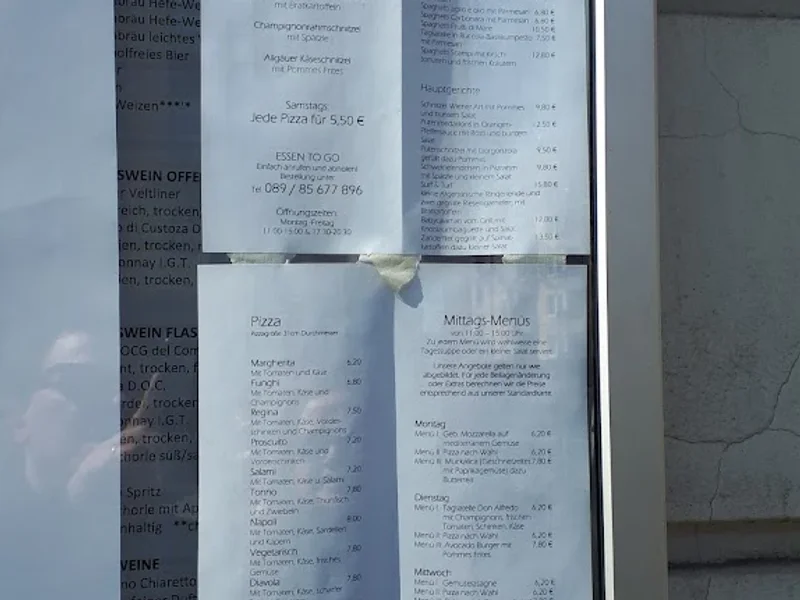 bräu Hefe-We
bräu leichtes
olfreies Bier
Weizen***'*
SWEIN OFFE
r Veltliner
reich, trocken,
o di Custoza D
ien, trocken, r
onnay I.G.T.
en, trocken,
SWEIN FLAS
OCG del Com
nt, trocken, f
a D.O.C.
rdei, trocken
onnay I.G.T.
en, trocken,
chorle süß/sa
Spritz
chorle mit Ap
nhaltig **c
WEINE
no Chiaretto
mit Bratkartoffeln
Champignonrahmschnitzel
mit Spätzle
Allgäuer Käseschnitzel
mit Pommes Frites
Samstags:
Jede Pizza für 5,50 €
ESSEN TO GO
Einfach anrufen und abholen!
Bestellung unter
Tel. 089 / 85 677 896
Öffnungszeiten:
Montag -Freitag
11:00-15:00 & 17:30-20:30
Spaghetti Carbonara mit Parmesan 6,80 €
Spaghetti Frutti di Mare 10,50 €
mit Parmesan 7,50 €
12,80 €
Tomaten und frischen Kräutern
Hauptgerichte
Schnitzel Wiener Art mit Pommes 9,80 €
und frischem Salat
12,50 €
Salat
Putenschnitzel mit Gorgonzola 9,50 €
gefüllt dazu Pommes
Schweinelendchen in Pilzrahm 9,80 €
mit Spätzle und kleinem Salat
Surf & Turf 15,80 €
kleine Argentinische Rinderlende und
zwei gegrillte Riesengarnelen, mit
Bratkartoffeln
Babycalamari vom Grill mit 12,00 €
Knoblauchbaguette und Salat
Zanderfilet gegrillt auf Spinat- 13,50 €
kartoffeln dazu kleiner Salat
Pizza
Pizzagröße 31cm Durchmesser
Margherita 6,20
Mit Tomaten und Käse
Funghi 6,80
Mit Tomaten, Käse und
Champignons
Regina 7,50
Mit Tomaten, Käse, Vorder-
schinken und Champignons
Proscuito 7,20
Mit Tomaten, Käse und
Vorderschinken
Salami 7,20
Mit Tomaten, Käse u. Salami
Tonno 7,80
Mit Tomaten, Käse, Thunfisch
und Zwiebeln
Napoli 8,00
Mit Tomaten, Käse, Sardellen
und Kapern
Vegetarisch 7,80
Mit Tomaten, Käse, frisches
Gemüse
Diavola 7,80
Mit Tomaten, Käse, scharfer
Mittags-Menüs
von 11:00 – 15:00 Uhr
Zu jedem Menü wird wahlweise eine
Tagessuppe oder ein kleiner Salat serviert.
Unsere Angebote gelten nur wie
abgebildet. Für jede Beilagenänderung
oder Extras berechnen wir die Preise
entsprechend aus unserer Standardkarte.
Montag
Menü I Geb. Mozzarella auf 6,20 €
mediteranem Gemüse
Menü II Pizza nach Wahl 6,20 €
Menü III Muckalica (Geschnetzeltes 7,80 €
mit Paprikagemüse) dazu
Butterreis
Dienstag
Menü I Tagliatelle Don Alfredo 6,20 €
mit Champignons, frischen
Tomaten, Schinken, Käse
Menü II Pizza nach Wahl 6,20 €
Menü III Avocado Burger mit 7,80 €
Pommes frites
Mittwoch
Menü I Gemüselasagne 6,20 €
Menü II Pizza nach Wahl 6,20 €